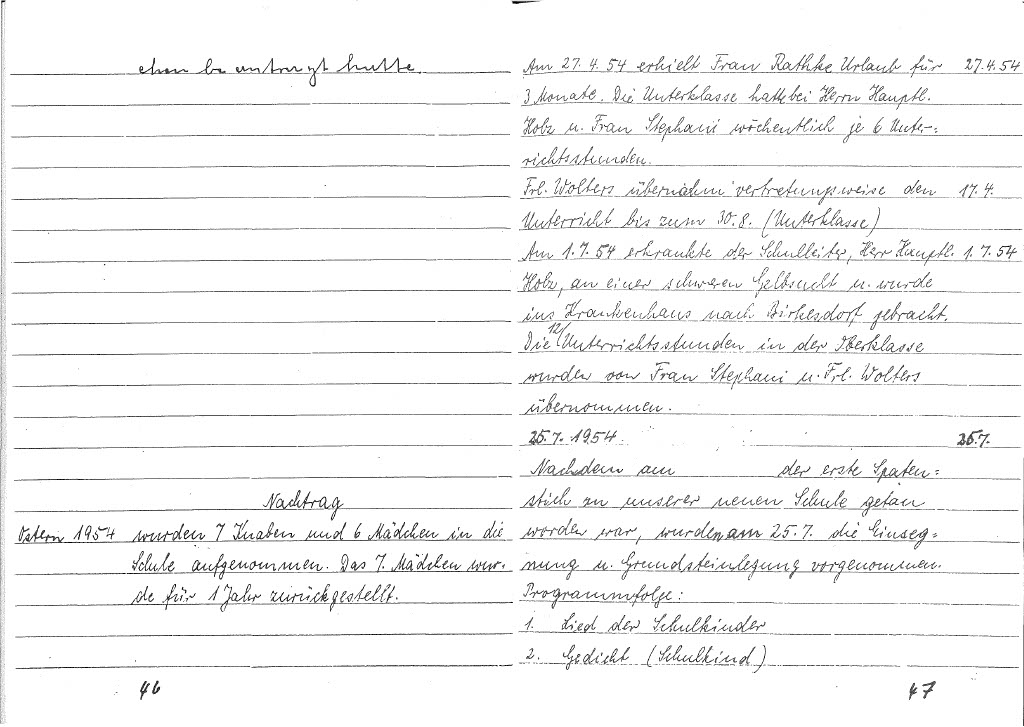 ehen beantragt hatte.
Nachtrag
Ostern 1954 wurden 7 Knaben und 6 Mädchen in die
Schule aufgenommen. Das 7. Mädchen wur-
de für 1 Jahr zurückgestellt.
46
Am 27.4.54 erhielt Frau Rathke Urlaub für 27.4.54
3 Monate. Die Unterklasse hatte bei Herrn Hauptl.
Holz u. Frau Stephani wöchentlich je 6 Unter-:
richtsstunden.
Frl. Wolters übernahm vertretungsweise den 17.4.
Unterricht bis zum 30.8. (Unterklasse)
Am 1.7.54 erkrankte der Schulleiter, Herr Hauptl. 1.7.54
Holz, an einer schweren Gelbsucht u. wurde
ins Krankenhaus nach Birkesdorf gebracht.
Die 12 Unterrichtsstunden in der Oberklasse
wurden von Frau Stephani u. Frl. Wolters
übernommen.
25.7.1954. 25.7.
Nachdem am der erste Spaten=
stich zu unserer neuen Schule getan
worden war, wurden am 25.7. die Einseg=
nung u. Grundsteinlegung vorgenommen.
Programmfolge:
1. Lied der Schulkinder
2. Gedicht (Schulkind)
47